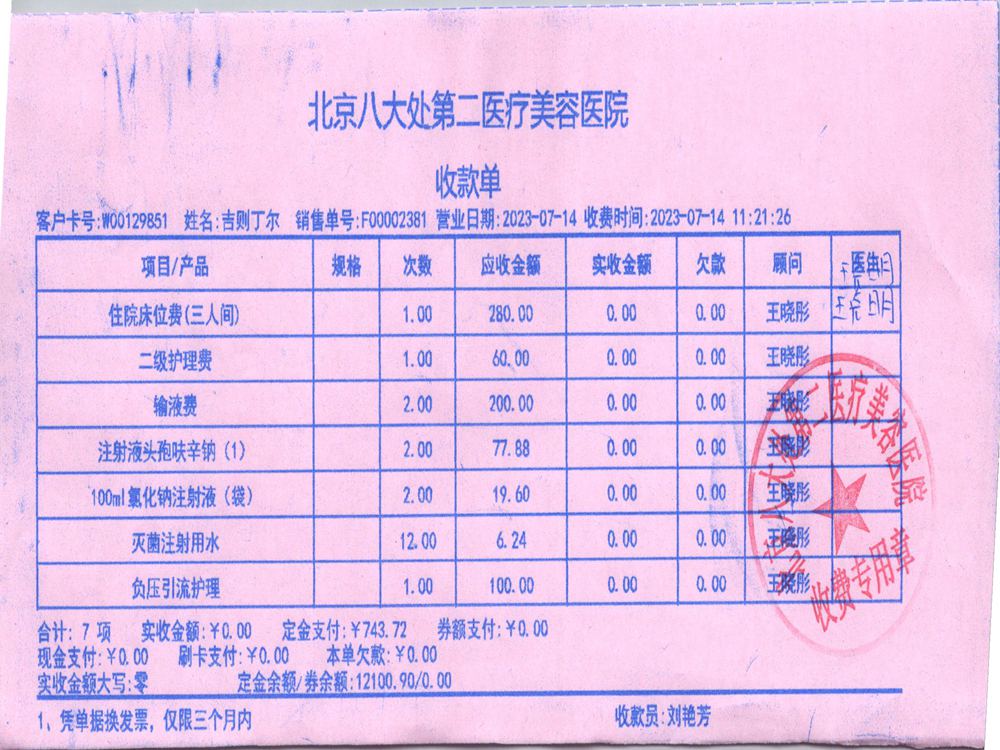 北京八大处第二医疗美容医院
收款单
客户卡号:W00129851 姓名:吉则丁尔 销售单号:F00002381 营业日期:2023-07-14 收费时间:2023-07-14 11:21:26
项目/产品 规格 次数 应收金额 实收金额 欠款 顾问 医生
住院床位费(三人间) 1.00 280.00 0.00 0.00 王晓彤
二级护理费 1.00 60.00 0.00 0.00 王晓彤
输液费 2.00 200.00 0.00 0.00 王晓彤
注射液头孢呋辛钠（1） 2.00 77.88 0.00 0.00 王晓彤
100ml氯化钠注射液（袋） 2.00 19.60 0.00 0.00 王晓彤
灭菌注射用水 12.00 6.24 0.00 0.00 王晓彤
负压引流护理 1.00 100.00 0.00 0.00 王晓彤
北京八大处第二医疗美容医院
收费专用章
合计: 7 项 实收金额:￥0.00 定金支付:￥743.72 券额支付:￥0.00
现金支付:￥0.00 刷卡支付:￥0.00 本单欠款:￥0.00
实收金额大写:零 定金余额/券余额:12100.90/0.00
1、凭单据换发票，仅限三个月内 收款员:刘艳芳